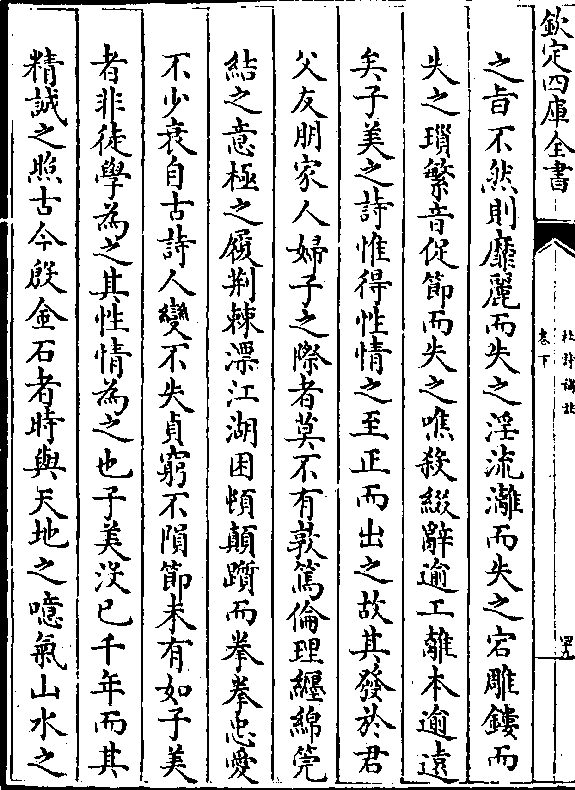 欽定四庫全書
杜詩詳註
卷下
之旨不然則靡麗而失之淫流灕而失之宕雕鏤而
失之瑣繁音促節而失之噍殺綴辭逾工離本逾遠
矣子美之詩惟得性情之至正而出之故其發於君
父友朋家人婦子之際者莫不有敦篤倫理纏綿菀
結之意極之履荆棘漂江湖困頓顛躓而拳拳忠愛
不少衰自古詩人變不失貞窮不隕節未有如子美
者非徒學為之其性情為之也子美沒已千年而其
精誠之照古今殷金石者時與天地之噫氣山水之